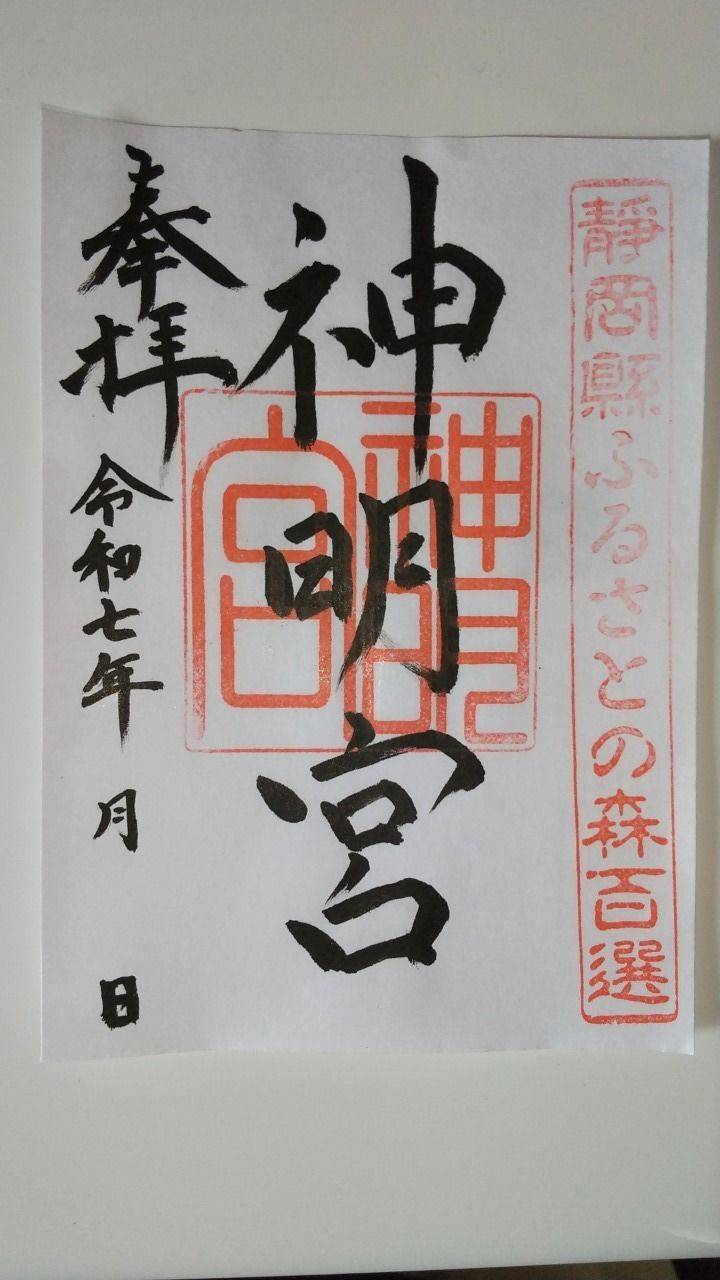 靜岡縣ふるさとの森百選
神明宮
神明宮
奉拝
令和七年 月 日